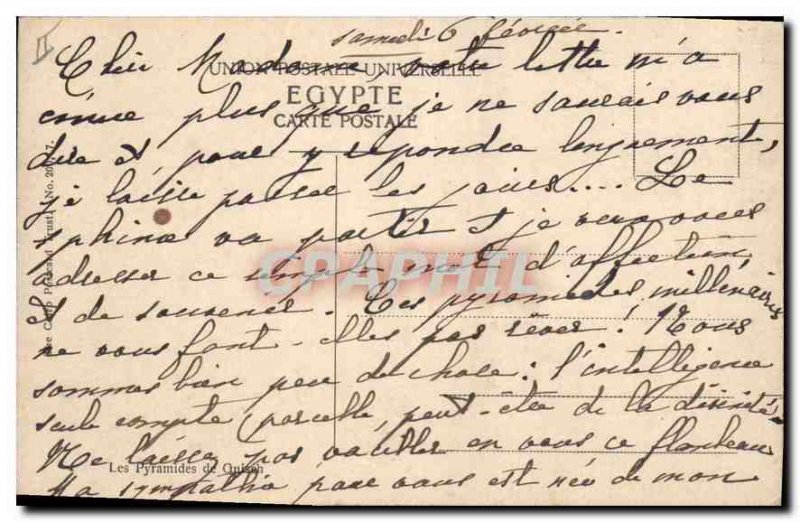 samedi 6 février.
Chère Madame votre lettre m'a
UNION POSTALE UNIVERSELLE
EGYPTE
CARTE POSTALE
émue plus que je ne saurais vous
dire et, pour y répondre longuement,
je laisse passer les jours.... Le
sphinx va partir et je veux vous
adresser ce simple mot d'affection
et de souvenir. Ces pyramides millénaires
ne vous font-elles pas rêver! Nous
sommes bien peu de chose: l'intelligence
seule compte, parcelle, peut-être de la divinité.
Ne laissez pas vaciller en vous ce flambeau
Ma sympathie pour vous est née de mon
Les Pyramides de Guizeh
Cairo Postcard Trust No.
CPAPHIL